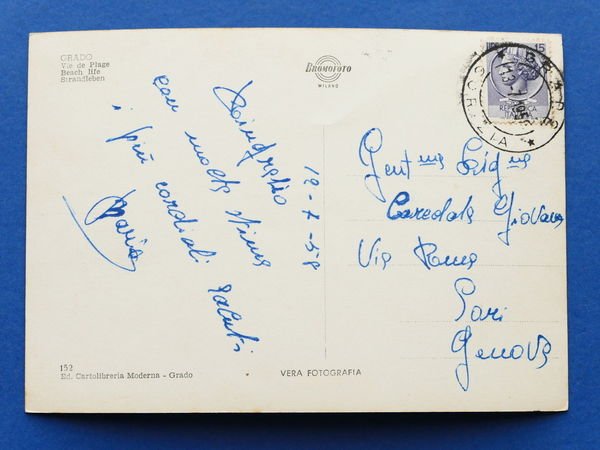 GRADO
Vie de Plage
Beach life
Strandleben
BROMOFOTO
MILANO
15
GORIZIA
Ringrazio
con molta stima
i più cordiali saluti
Maria
12-7-58
Gent.ma Sig.na
Giovanna
Via Roma
Sori
Genova
152
Ed. Cartolibreria Moderna - Grado
VERA FOTOGRAFIA